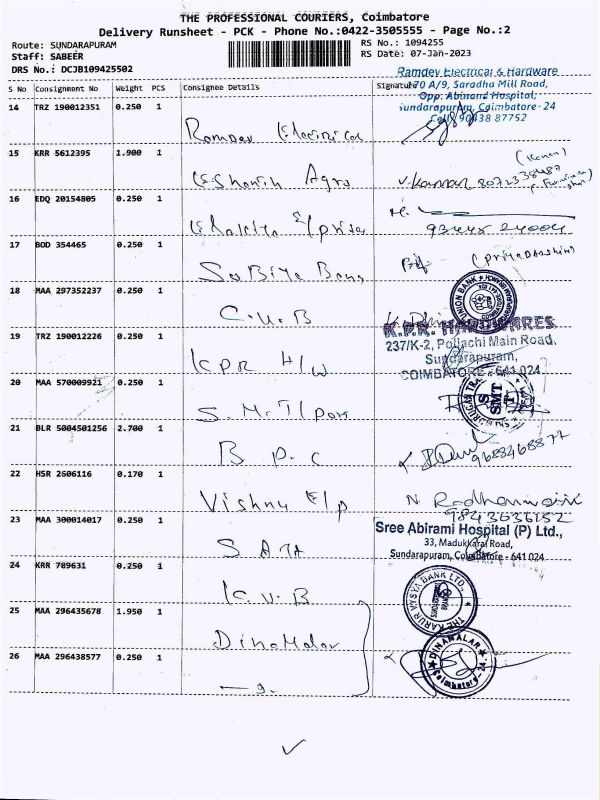 THE PROFESSIONAL COURIERS, Coimbatore
Delivery Runsheet - PCK - Phone No.:0422-3505555 - Page No.:2
Route: SUNDARAPURAM
Staff: SABEER
DRS No.: DCJB109425502
RS No.: 1094255
RS Date: 07-Jan-2023
S No Consignment No Weight PCS Consignee Details Signature
Ramdev Electrical & Hardware
170 A/9, Saradha Mill Road,
Opp. Abirami Hospital,
Sundarapuram, Coimbatore - 24
Cell: 90438 87752
14 TRZ 190012351 0.250 1
Ramdev Electrical
15 KRR 5612395 1.900 1
Agro
V. Kannan 8072338487
16 EDQ 20154805 0.250 1
93445 24004
17 BOD 354465 0.250 1
(PRIYADARSHINI)
18 MAA 297352237 0.250 1
C.U.B
UNION BANK
19 TRZ 190012226 0.250 1
KPR H/W
K.P.R. HARDWARES
237/K-2, Pollachi Main Road,
Sundarapuram,
COIMBATORE - 641 024
20 MAA 570009921 0.250 1
S.M.T
SMT
21 BLR 5004501256 2.700 1
B P.C
9688468877
22 HSR 2606116 0.170 1
Vishnu E/p
N. Radhamani
9843636152
23 MAA 300014017 0.250 1
SATA
Sree Abirami Hospital (P) Ltd.,
33, Madukkarai Road,
Sundarapuram, Coimbatore - 641 024
24 KRR 789631 0.250 1
K.V.B
THE KARUR VYSYA BANK LTD.
25 MAA 296435678 1.950 1
Dinamalar
26 MAA 296438577 0.250 1
DINAMALAR
Coimbatore-24